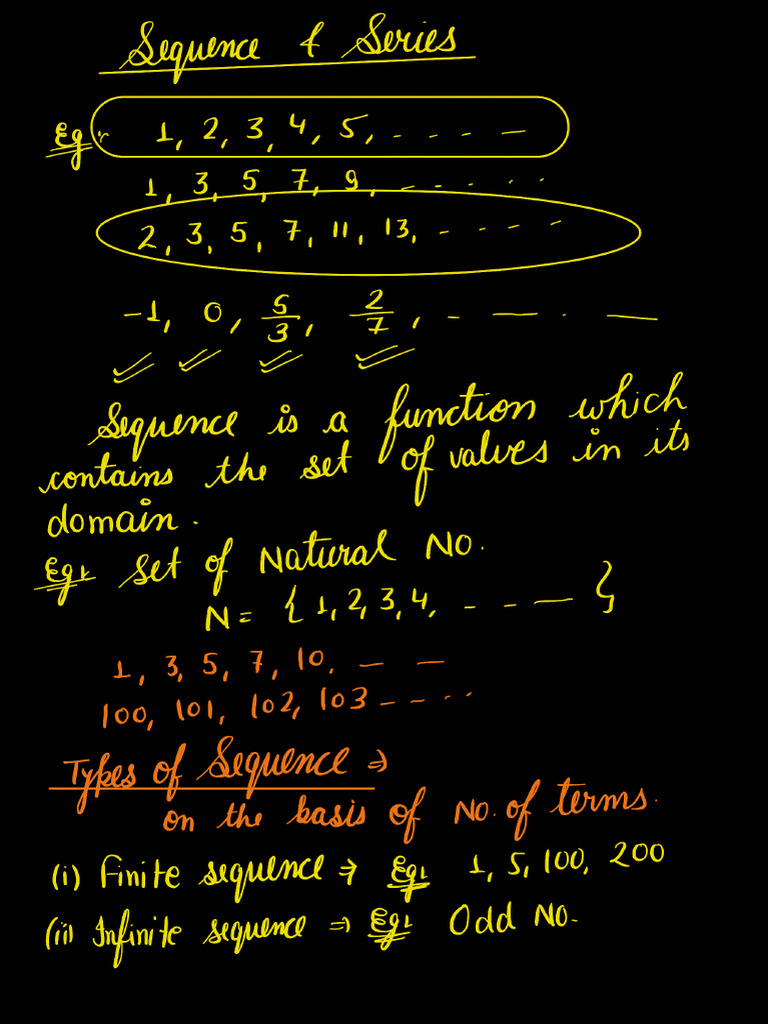 Sequence & Series
Eg:- 1, 2, 3, 4, 5, - - - - —
1, 3, 5, 7, 9, - - - . . .
2, 3, 5, 7, 11, 13, - - - - -
-1, 0, 5/3, 2/7, - — . —
Sequence is a function which
contains the set of values in its
domain.
Eg: Set of Natural No.
N = { 1, 2, 3, 4, - - - — }
1, 3, 5, 7, 10, — —
100, 101, 102, 103 - - - . .
Types of Sequence ⇒
on the basis of No. of terms.
(i) Finite sequence ⇒ Eg: 1, 5, 100, 200
(ii) Infinite sequence ⇒ Eg: Odd No.